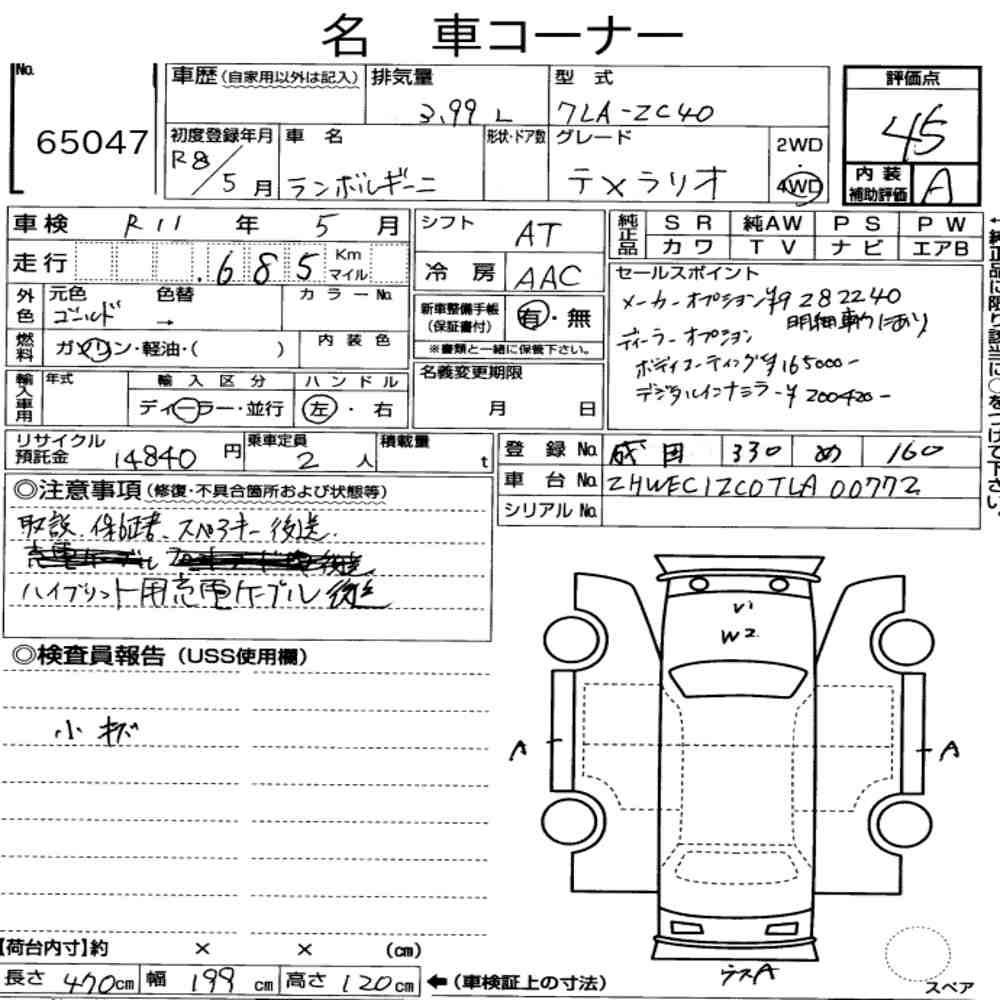 名 車コーナー
No.
65047
車歴(自家用以外は記入)
排気量
3.99 L
型式
7LA-ZC40
初度登録年月
R8/5月
車名
ランボルギーニ
形状・ドア数
グレード
テメラリオ
2WD
・
4WD
評価点
45
内装
補助評価
A
車検 R11 年 5 月
走行 .685 Km マイル
シフト
AT
冷房
AAC
純正品
SR 純AW PS PW
カワ TV ナビ エアB
外色
元色
ゴールド
色替
→
カラーNo.
燃料
ガソリン・軽油・( )
内装色
新車整備手帳
(保証書付)
有・無
※書類と一緒に保管下さい。
セールスポイント
メーカーオプション¥9282240
明細車内にあり
ディーラーオプション
ボディコーティング¥165000-
デジタルインナミラー¥200420-
輸入車用
年式
輸入区分
ディーラー・並行
ハンドル
左・右
名義変更期限
月 日
リサイクル
預託金
14840 円
乗車定員
2 人
積載量
t
登録No.
成田 330 め 160
車台No.
ZHWEC1ZC0TLA00772
シリアルNo.
◎注意事項(修復・不具合箇所および状態等)
取説、保証書、スペアキー後送
ハイブリット用充電ケーブル後送
◎検査員報告(USS使用欄)
小キズ
V1
W2
A
A
ラスA
スペア
【荷台内寸】約 × × (cm)
長さ 470cm 幅 199 cm 高さ 120cm ←(車検証上の寸法)